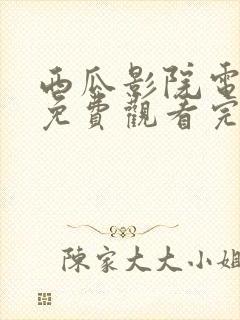 西瓜影院電
免費觀看完
陳家大大小姐